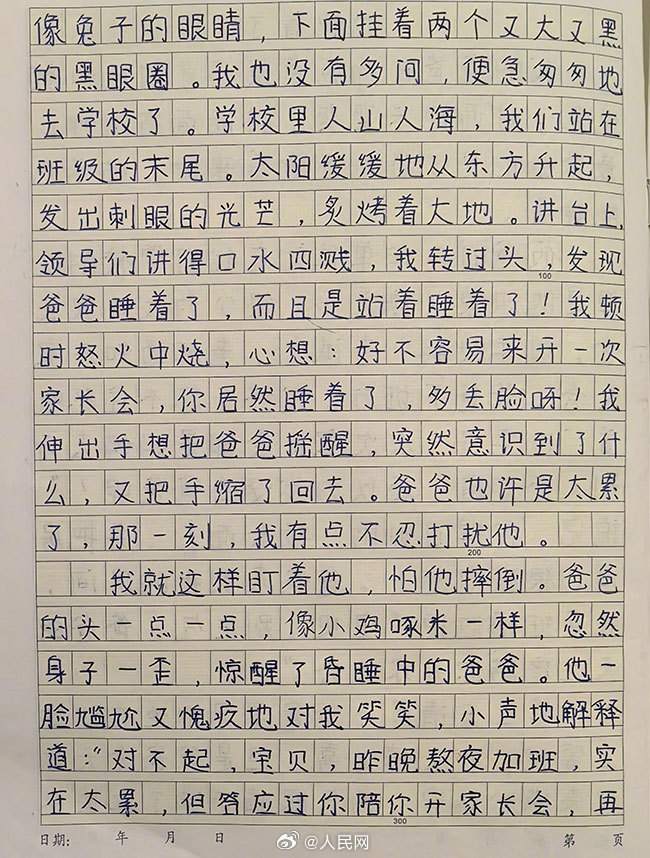 像兔子的眼睛，下面挂着两个又大又黑
的黑眼圈。我也没有多问，便急匆匆地
去学校了。学校里人山人海，我们站在
班级的末尾。太阳缓缓地从东方升起，
发出刺眼的光芒，炙烤着大地。讲台上，
领导们讲得口水四溅，我转过头，发现
100
爸爸睡着了，而且是站着睡着了！我顿
时怒火中烧，心想：好不容易来开一次
家长会，你居然睡着了，多丢脸呀！我
伸出手想把爸爸摇醒，突然意识到了什
么，又把手缩了回去。爸爸也许是太累
了，那一刻，我有点不忍打扰他。
200
我就这样盯着他，怕他摔倒。爸爸
的头一点一点，像小鸡啄米一样，忽然
身子一歪，惊醒了昏睡中的爸爸。他一
脸尴尬又愧疚地对我笑笑，小声地解释
道：“对不起，宝贝，昨晚熬夜加班，实
在太累，但答应过你陪你开家长会，再
300
日期： 年 月 日 @人民网 第 页